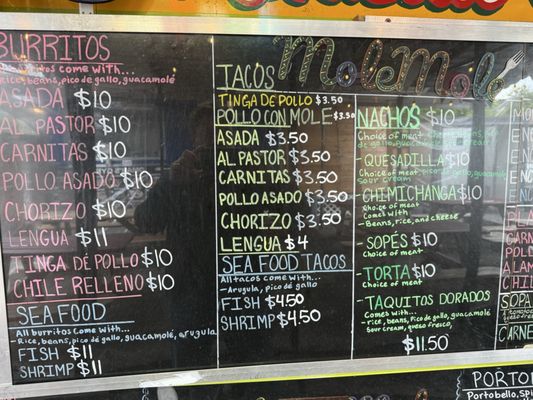 BURRITOS
Burritos come with...
rice, beans, pico de gallo, guacamole
ASADA $10
AL PASTOR $10
CARNITAS $10
POLLO ASADO $10
CHORIZO $10
LENGUA $11
TINGA DE POLLO $10
CHILE RELLENO $10
SEA FOOD
All burritos come with...
- Rice, beans, pico de gallo, guacamole, arugula
FISH $11
SHRIMP $11
TACOS
Mole Mole
TINGA DE POLLO $3.50
POLLO CON MOLE $3.50
ASADA $3.50
AL PASTOR $3.50
CARNITAS $3.50
POLLO ASADO $3.50
CHORIZO $3.50
LENGUA $4
SEA FOOD TACOS
All tacos come with...
- Arugula, pico de gallo
FISH $4.50
SHRIMP $4.50
NACHOS $10
Choice of meat
- QUESADILLA $10
Choice of meat
sour cream
- CHIMICHANGA $10
Choice of meat
Comes with
- Beans, rice, and cheese
- SOPES $10
Choice of meat
- TORTA $10
Choice of Meat
- TAQUITOS DORADOS
Comes with
- rice, beans, pico de gallo, guacamole,
sour cream, queso fresco,
$11.50
SOPA
CARNE
PORTO
Portobello, spi